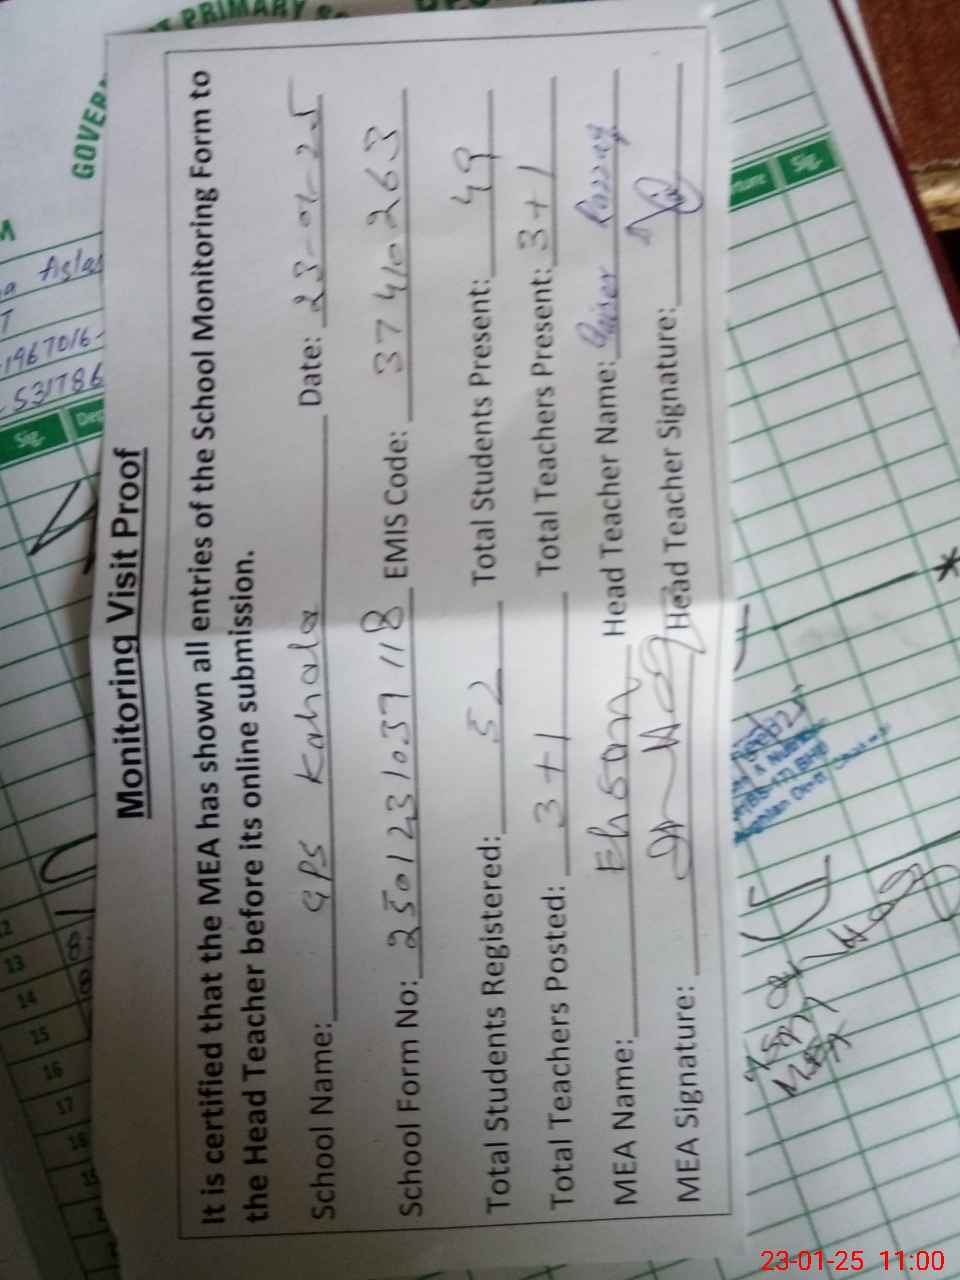 Monitoring Visit Proof
It is certified that the MEA has shown all entries of the School Monitoring Form to
the Head Teacher before its online submission.
School Name: GPS Kahala Date: 23-01-25
School Form No: 2501231037118 EMIS Code: 37410263
Total Students Registered: 52 Total Students Present: 49
Total Teachers Posted: 3+1 Total Teachers Present: 3+1
MEA Name: Ehsan Head Teacher Name: Qaiser Razzaq
MEA Signature: Head Teacher Signature:
PRIMARY
GOVER
-19670/6-
531786
Sig.
Sig.
12
13
14
15
16
17
18
MEA
23-01-25 11:00